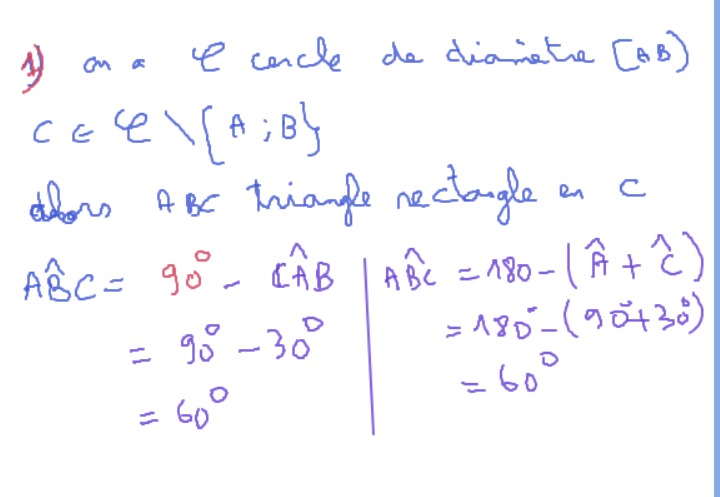 1) on a 𝒞 cercle de diamètre [AB)
C ∈ 𝒞 \ {A ; B}
alors ABC triangle rectangle en C
AB̂C = 90° - CÂB
= 90° - 30°
= 60°
AB̂C = 180 - (Â + Ĉ)
= 180° - (90° + 30°)
= 60°